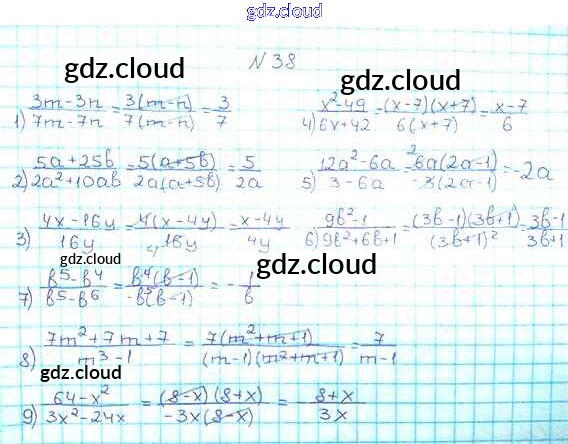 gdz.cloud
gdz.cloud gdz.cloud
N 38
1) (3m-3n)/(7m-7n) = 3(m-n)/7(m-n) = 3/7
4) (x²-49)/(6x+42) = (x-7)(x+7)/6(x+7) = (x-7)/6
2) (5a+25b)/(2a²+10ab) = 5(a+5b)/2a(a+5b) = 5/2a
5) (12a²-6a)/(3-6a) = 6a(2a-1)/-3(2a-1) = -2a
3) (4x-16y)/16y = 4(x-4y)/16y = (x-4y)/4y
6) (9b²-1)/(9b²+6b+1) = (3b-1)(3b+1)/(3b+1)² = (3b-1)/(3b+1)
gdz.cloud gdz.cloud
7) (b⁵-b⁴)/(b⁵-b⁶) = b⁴(b-1)/-b⁵(b-1) = -1/b
8) (7m²+7m+7)/(m³-1) = 7(m²+m+1)/(m-1)(m²+m+1) = 7/(m-1)
gdz.cloud gdz.cloud
9) (64-x²)/(3x²-24x) = (8-x)(8+x)/-3x(8-x) = -(8+x)/3x